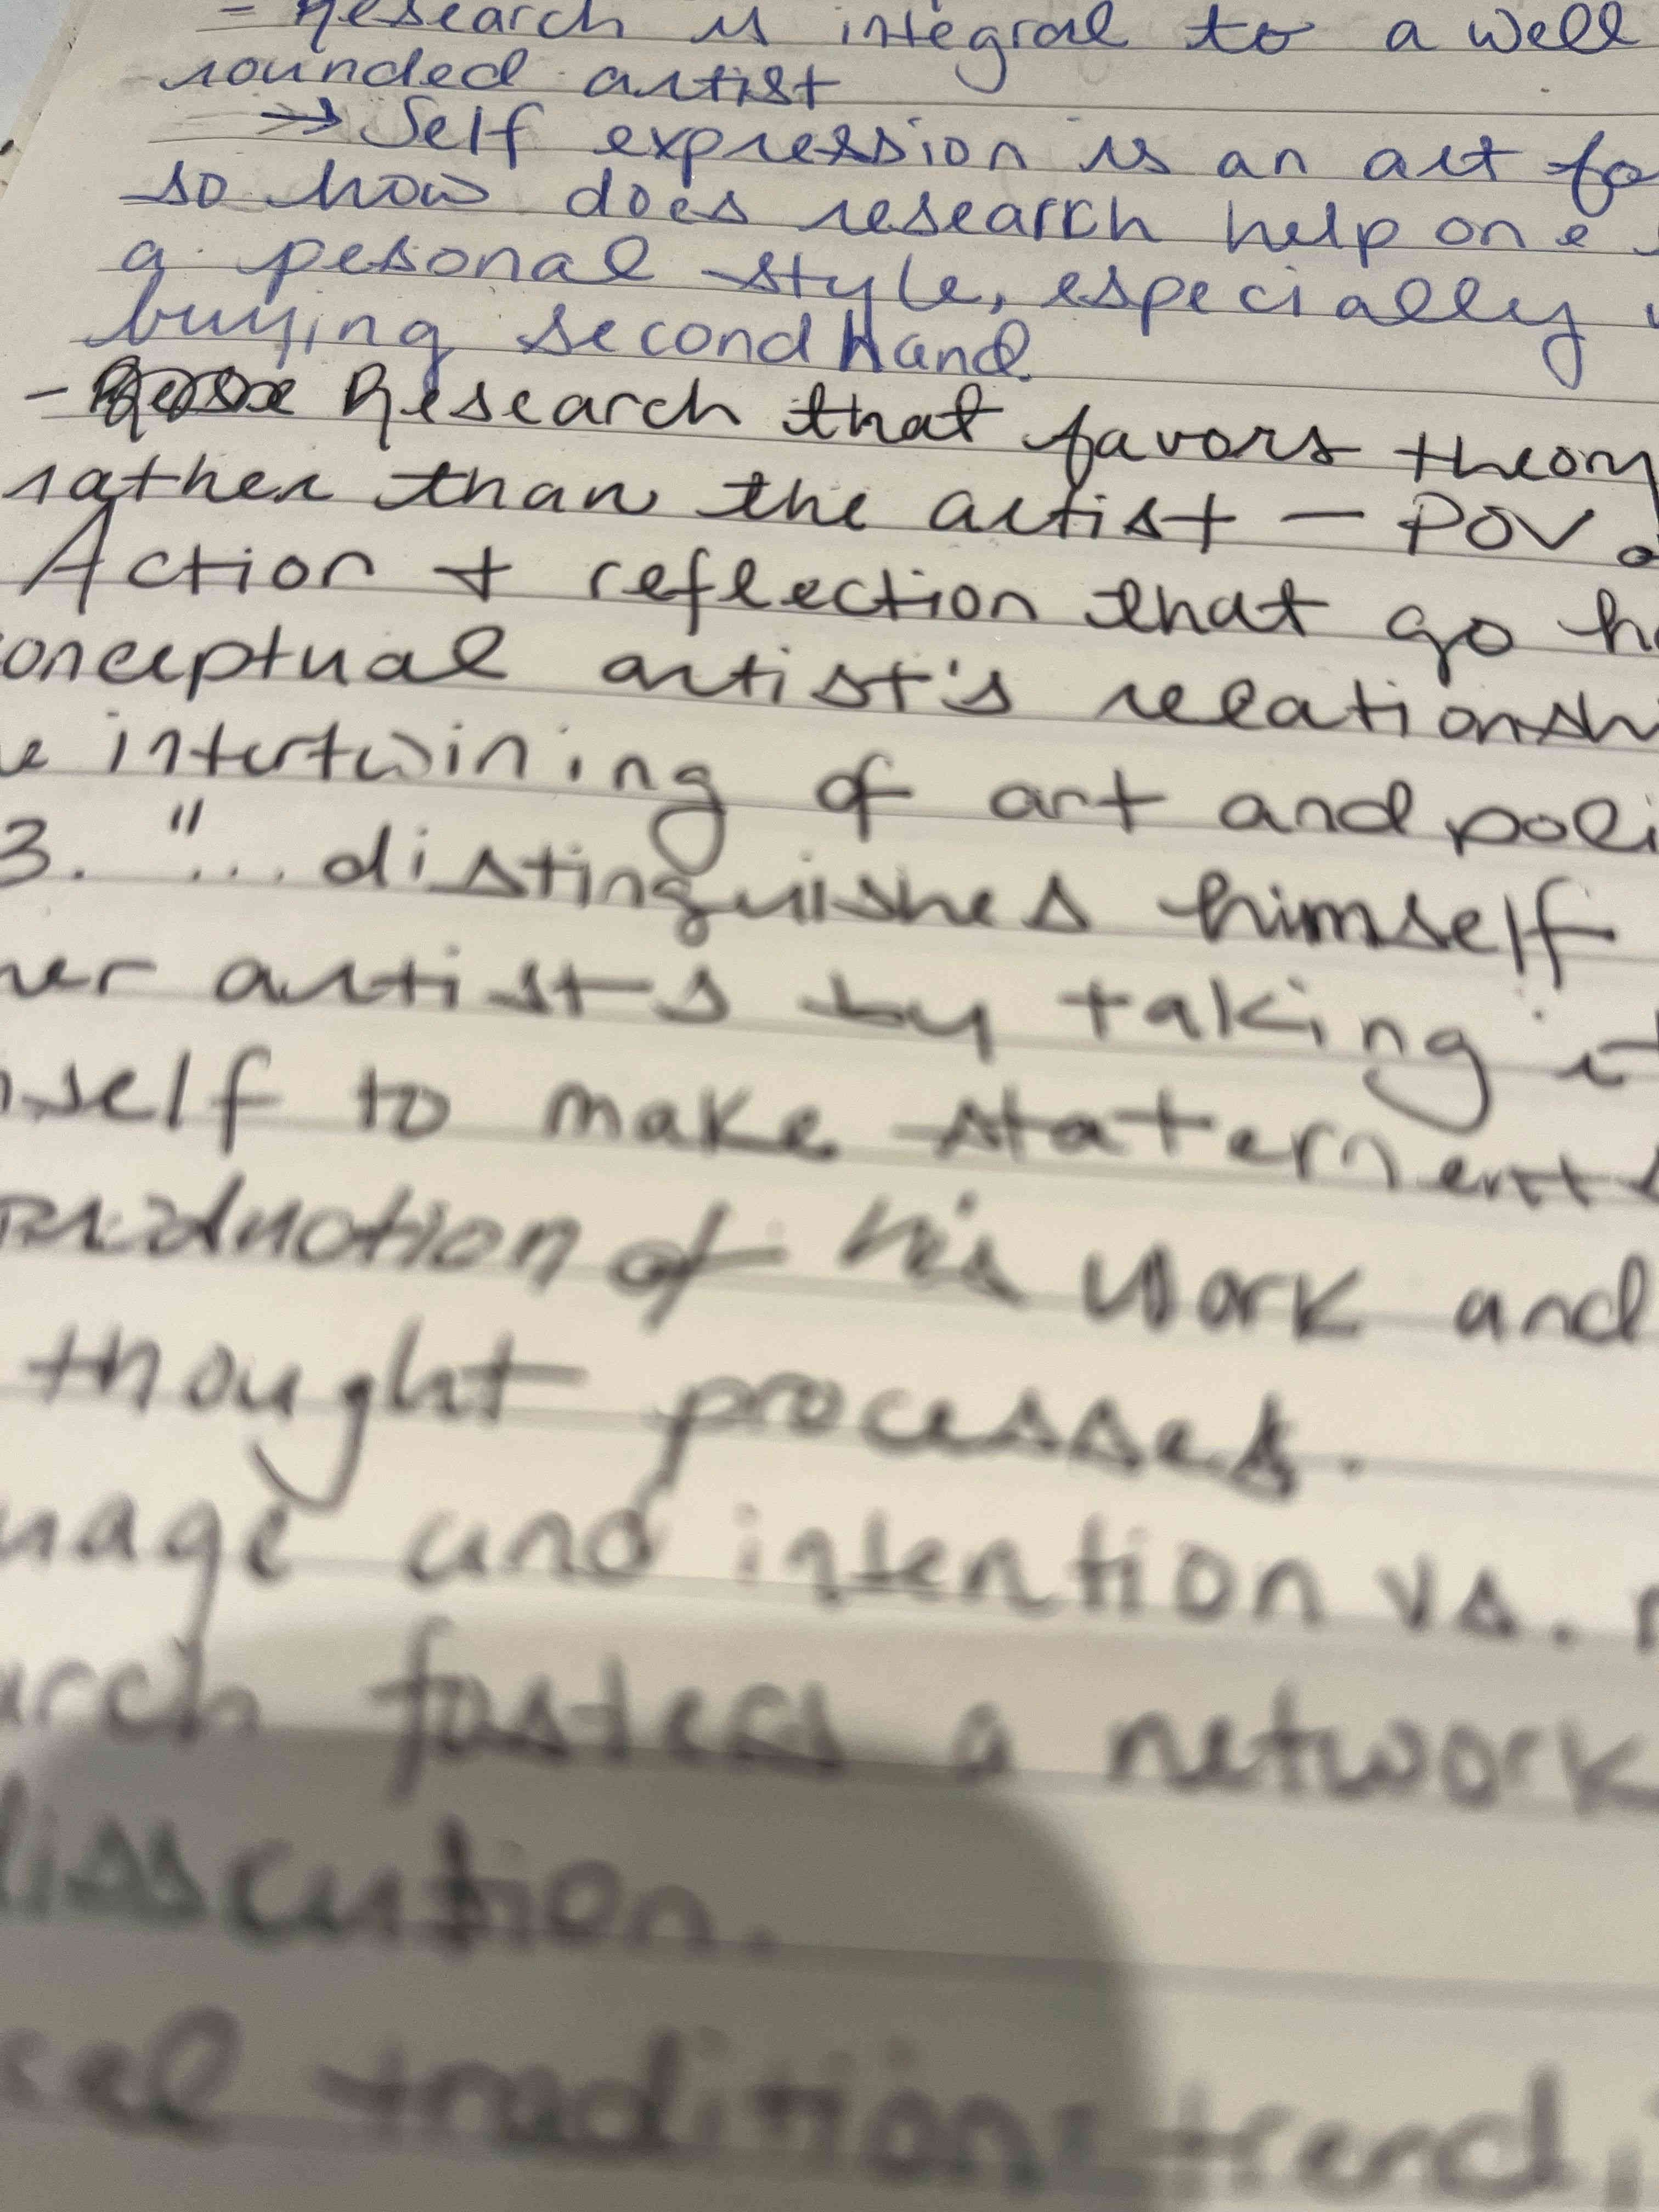 - Research is integral to a well
rounded artist
→ Self expression is an art fo
so how does research help one
a pesonal style, especially
buying second hand
- Research that favors theory
rather than the artist - POV.
Action + reflection that go h
onceptual artist's relationsh
intertwining of art and poli
3. "... distinguishes himself
her artists by taking it
self to make statements
production of his work and
thought processes.
and intention vs.
arch fosters a network
disscution.
traditions trend